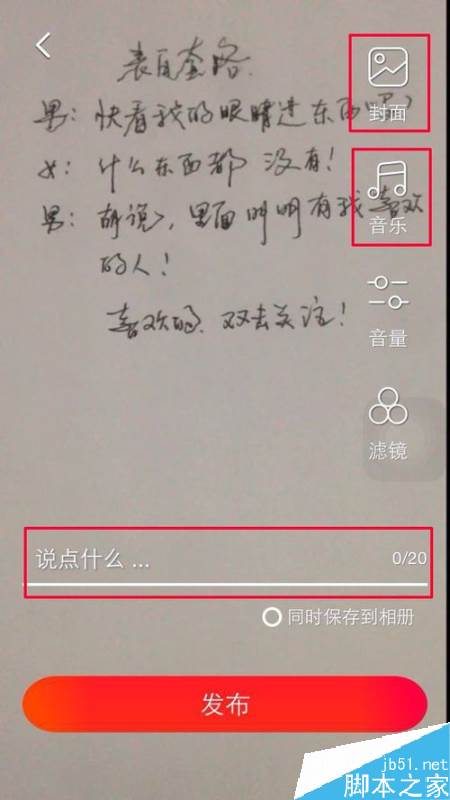 表白套路.
男: 快看我的眼睛进东西了?
女: 什么东西都 没有!
男: 胡说, 里面明明有我喜欢
的人!
喜欢的. 双击关注!
封面
音乐
音量
滤镜
说点什么 ... 0/20
同时保存到相册
发布
jb51.net
脚本之家